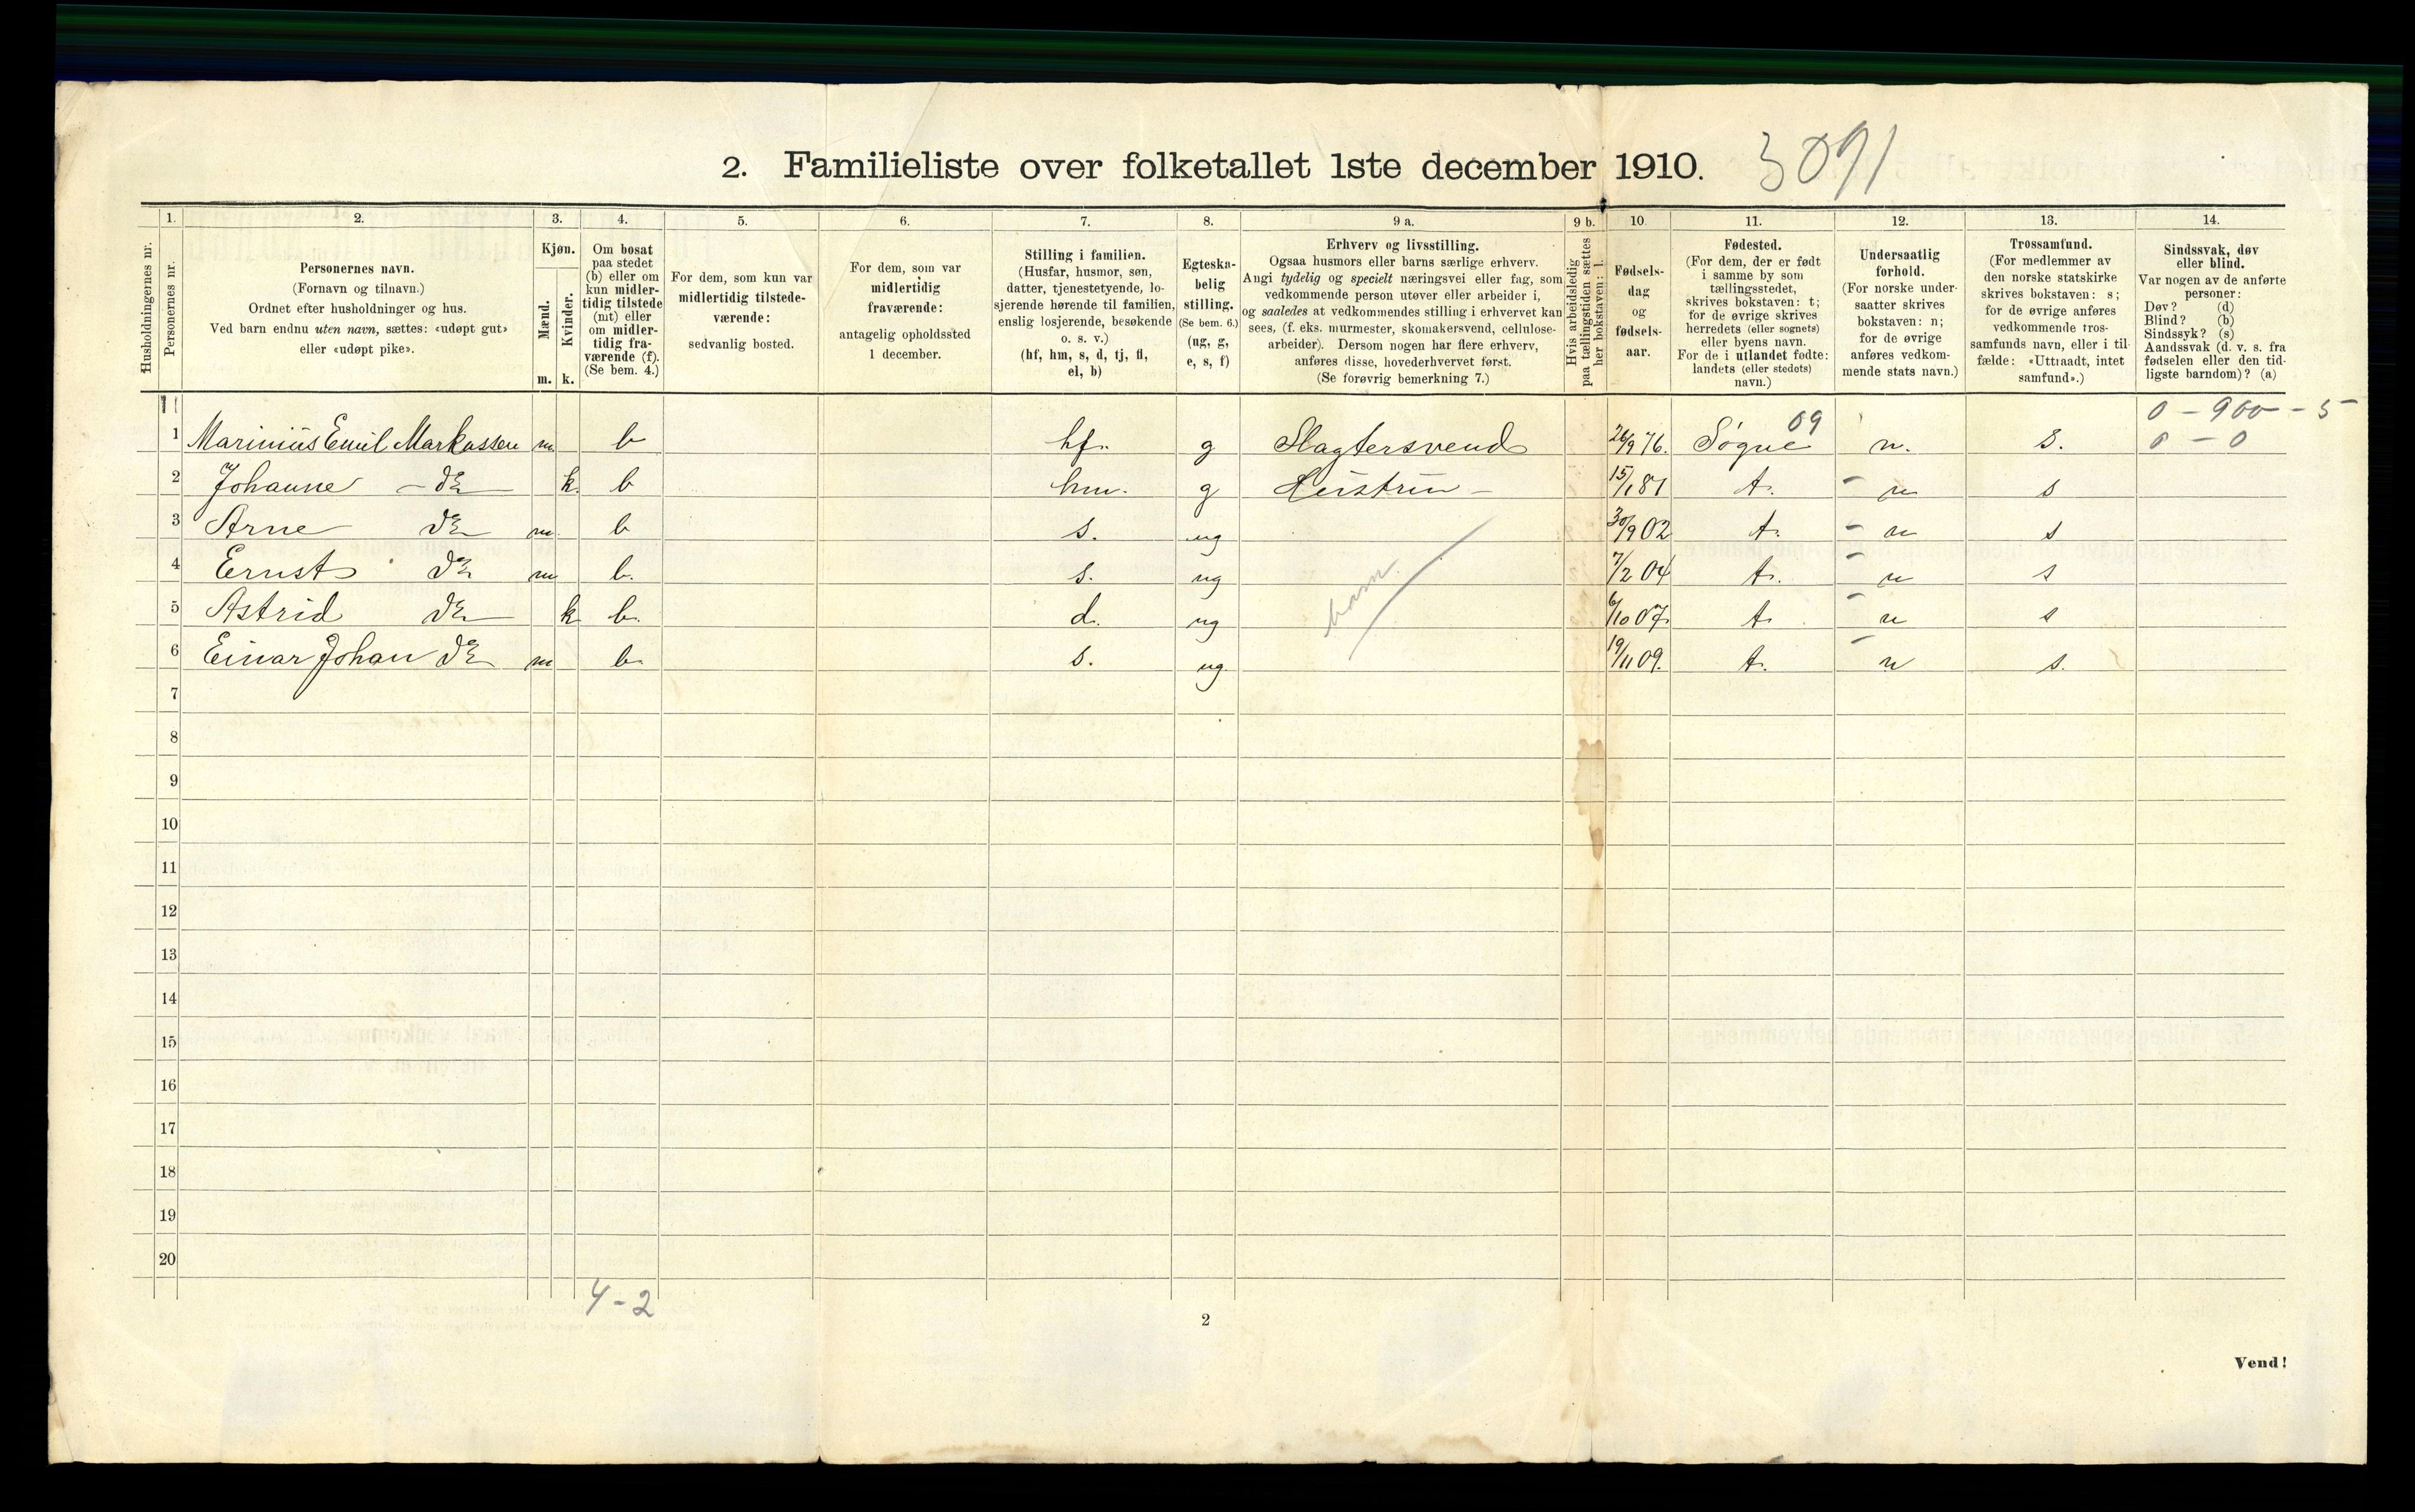 2. Familieliste over folketallet 1ste december 1910. 3091
Husholdningernes nr.
1.
Personernes nr.
2.
Personernes navn.
(Fornavn og tilnavn.)
Ordnet efter husholdninger og hus.
Ved barn endnu uten navn, sættes: «udøpt gut»
eller «udøpt pike».
3.
Kjøn.
Mænd.
Kvinder.
m. k.
4.
Om bosat
paa stedet
(b) eller om
kun midler-
tidig tilstede
(mt) eller
om midler-
tidig fra-
værende (f).
(Se bem. 4.)
5.
For dem, som kun var
midlertidig tilstede-
værende:
sedvanlig bosted.
6.
For dem, som var
midlertidig
fraværende:
antagelig opholdssted
1 december.
7.
Stilling i familien.
(Husfar, husmor, søn,
datter, tjenestetyende, lo-
sjerende hørende til familien,
enslig losjerende, besøkende
o. s. v.)
(hf, hm, s, d, tj, fl,
el, b)
8.
Egteska-
belig
stilling.
(Se bem. 6.)
(ug, g,
e, s, f)
9 a.
Erhverv og livsstilling.
Ogsaa husmors eller barns særlige erhverv.
Angi tydelig og specielt næringsvei eller fag, som
vedkommende person utøver eller arbeider i,
og saaledes at vedkommendes stilling i erhvervet kan
sees, (f. eks. murmester, skomakersvend, cellulose-
arbeider). Dersom nogen har flere erhverv,
anføres disse, hovederhvervet først.
(Se forøvrig bemerkning 7.)
9 b.
Hvis arbeidsledig
paa tællingstiden sættes
her bokstaven: l.
10.
Fødsels-
dag
og
fødsels-
aar.
11.
Fødested.
(For dem, der er født
i samme by som
tællingsstedet,
skrives bokstaven: t;
for de øvrige skrives
herredets (eller sognets)
eller byens navn.
For de i utlandet fødte:
landets (eller stedets)
navn.)
12.
Undersaatlig
forhold.
(For norske under-
saatter skrives
bokstaven: n;
for de øvrige
anføres vedkom-
mende stats navn.)
13.
Trossamfund.
(For medlemmer av
den norske statskirke
skrives bokstaven: s;
for de øvrige anføres
vedkommende tros-
samfunds navn, eller i til-
fælde: «Uttraadt, intet
samfund».)
14.
Sindssvak, døv
eller blind.
Var nogen av de anførte
personer:
Døv? (d)
Blind? (b)
Sindssyk? (s)
Aandssvak (d. v. s. fra
fødselen eller den tid-
ligste barndom)? (a)
09 0 - 900 - 5
1 Marinius Emil Markussen m b hf. g Slagtersvend 26/9 76. Søgne n. s. 0 - 0
2 Johanne - do k. b hm. g Hustru - 15/1 81 t. - n s
3 Arne do m. b s. ug 30/9 02 t. - n s
4 Ernst do m b. s. ug barn. 7/2 04 t. - n s
5 Astrid do k b. d. ug 6/10 07. t. - n s
6 Einar Johan do m b. s. ug. 19/11 09. t. - n s.
7
8
9
10
11
12
13
14
15
16
17
18
19
20
4-2
2
Vend!